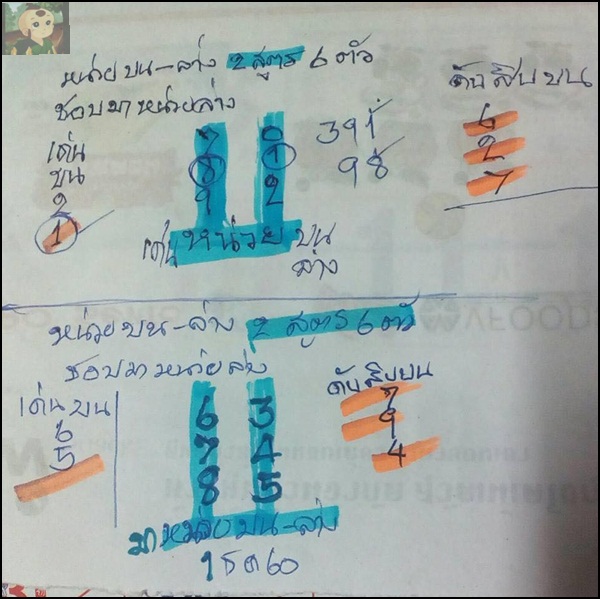 หน่วย บน-ล่าง 2 สูตร 6 ตัว
ชอบมา หน่วยล่าง
เด่น
บน
2
1
7 0
8 1
9 2
391
98
ดับสิบ บน
6
2
7
เด่น หน่วย บน
ล่าง
หน่วย บน-ล่าง 2 สูตร 6 ตัว
ชอบมา หน่วยล่าง
เด่น บน
6
5
6 3
7 4
8 5
ดับสิบบน
7
9
4
มา หน่วย บน-ล่าง